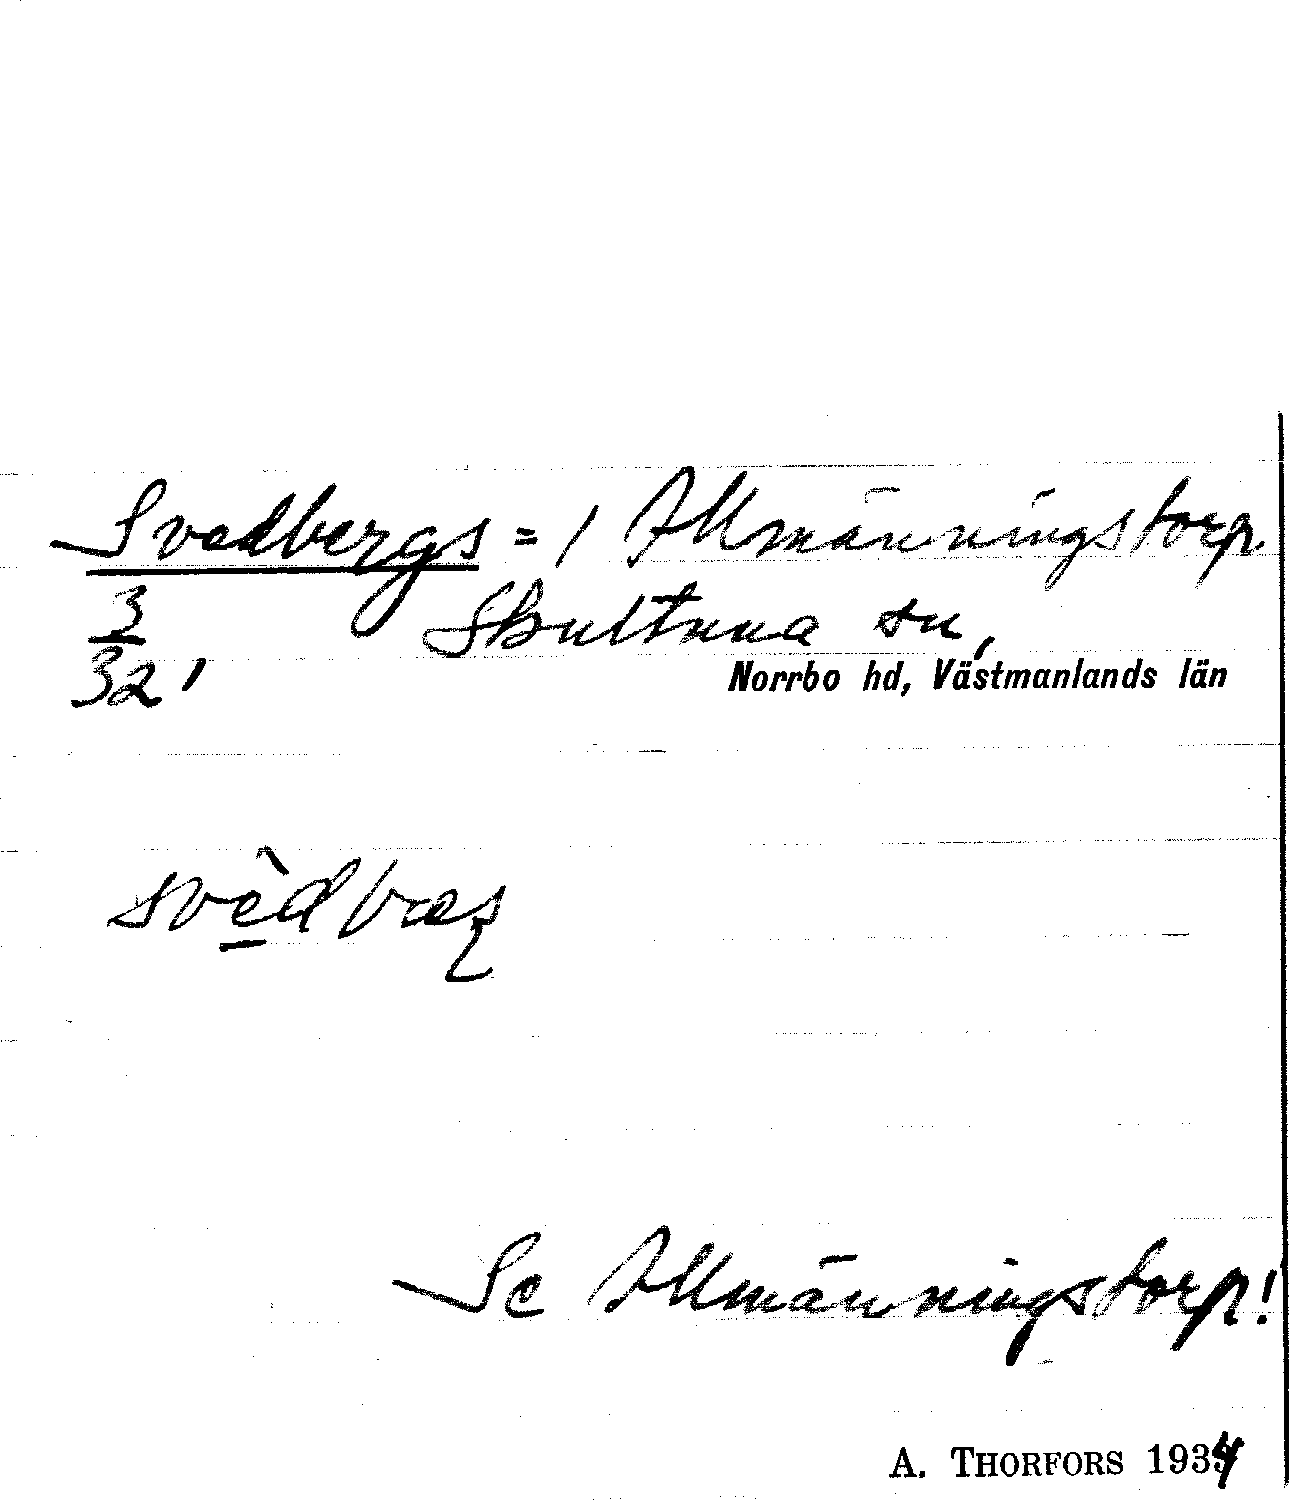 Svedbergs = / Allmänningstorp
3/32, Skultuna sn,
Norrbo hd, Västmanlands län
Se Allmänningstorp!
A. THORFORS 1934